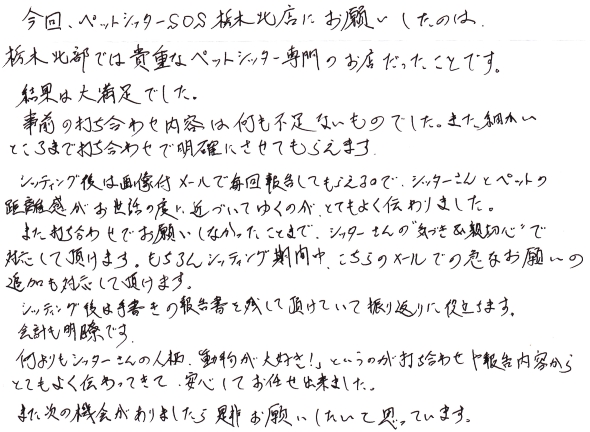 今回、ペットシッターSOS栃木北店にお願いしたのは、
栃木北部では貴重なペットシッター専門のお店だったことです。
結果は大満足でした。
事前の打ち合わせ内容は何も不足ないものでした。また細かい
ところまで打ち合わせで明確にさせてもらえます。
シッティング後は画像付メールで毎回報告してもらえるので、シッターさんとペットの
距離感がお世話の度に近づいてゆくのが、とてもよく伝わりました。
また打ち合わせでお願いしなかったことまで、シッターさんの"気づき&親切心"で
対応して頂けます。もちろんシッティング期間中、こちらのメールでの急なお願いの
追加も対応して頂けます。
シッティング後は手書きの報告書を残して頂けていて振り返りに役立ちます。
会計も明瞭です。
何よりもシッターさんの人柄、「動物が大好き!」というのが打ち合わせや報告内容から
とてもよく伝わってきて、安心してお任せ出来ました。
また次の機会がありましたら是非お願いしたいと思っています。